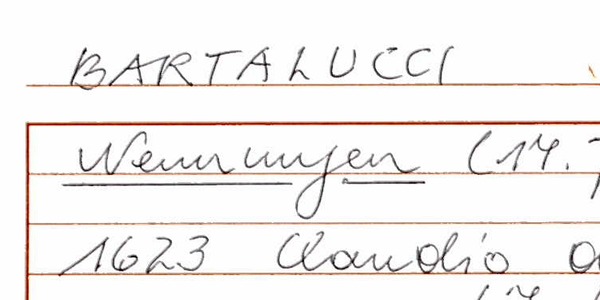 BARTALUCCI
Nennungen (17.
1623 Claudio